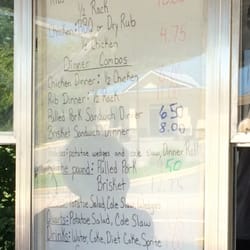 ½ Rack
Chicken: BBQ or Dry Rub
½ Chicken 4.75
Dinner Combos
Chicken Dinner: ½ Chicken
Rib Dinner: ½ Rack
Pulled Pork Sandwich Dinner 6.50
Brisket Sandwich Dinner 8.00
potatoe wedges and cole slaw, Dinner Roll
pound: Pulled Pork 50
Brisket
Potatoe Salad, Cole Slaw
Quarts: Potatoe Salad, Cole Slaw
Drinks: Water, Coke, Diet Coke, Sprite